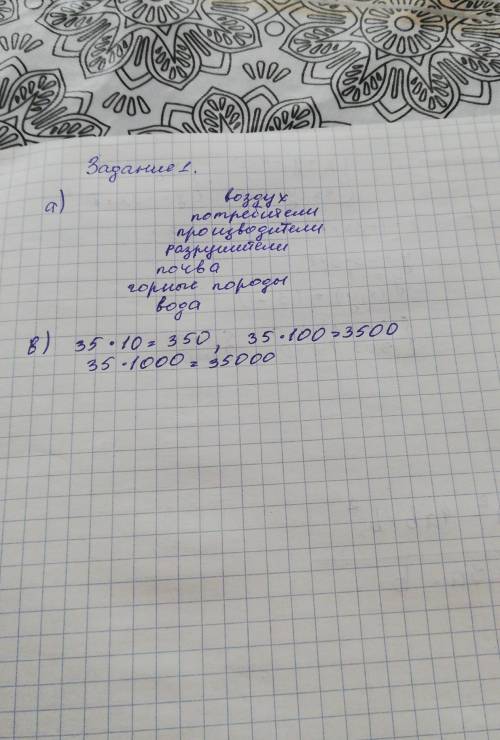 Задание 1.
а)
воздух
потребители
производители
разрушители
почва
горные породы
вода
в) 35 · 10 = 350, 35 · 100 = 3500
35 · 1000 = 35000